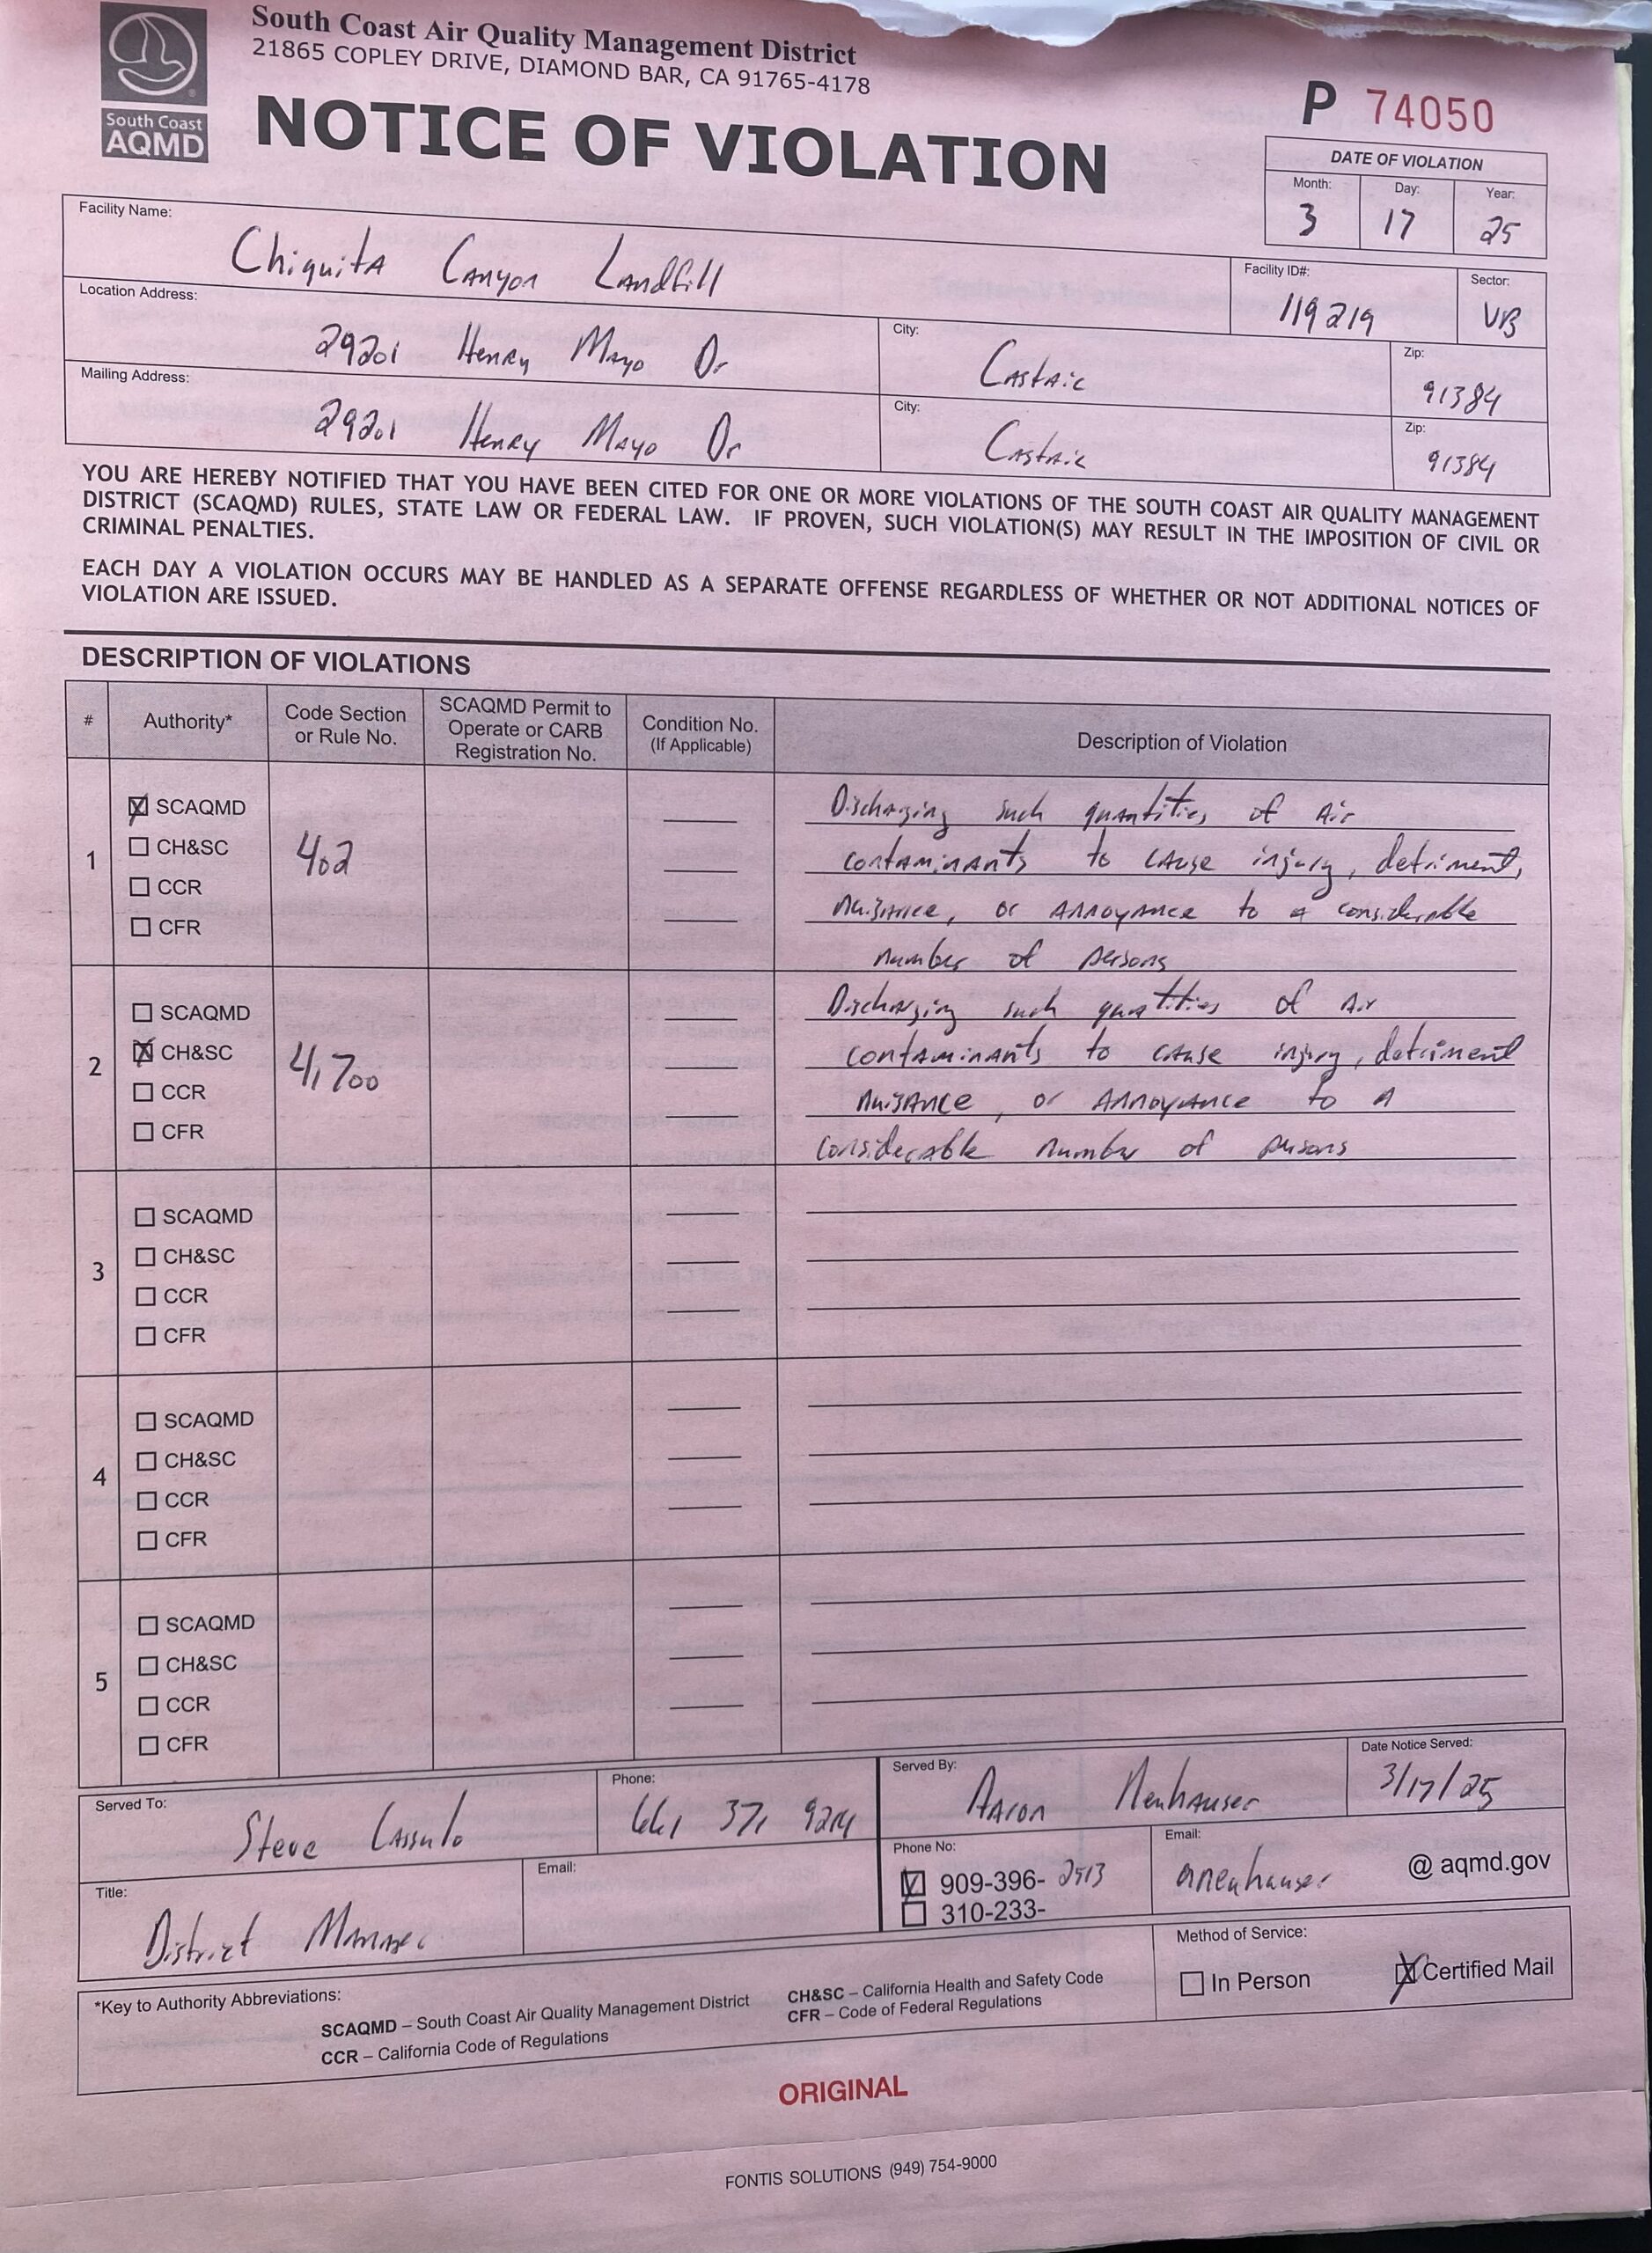 South Coast Air Quality Management District
21865 COPLEY DRIVE, DIAMOND BAR, CA 91765-4178
South Coast
AQMD
NOTICE OF VIOLATION
P 74050
DATE OF VIOLATION
Month: Day: Year:
3 17 25
Facility Name: Chiquita Canyon Landfill
Facility ID#: 119219
Sector: VB
Location Address: 29201 Henry Mayo Dr
City: Castaic
Zip: 91384
Mailing Address: 29201 Henry Mayo Dr
City: Castaic
Zip: 91384
YOU ARE HEREBY NOTIFIED THAT YOU HAVE BEEN CITED FOR ONE OR MORE VIOLATIONS OF THE SOUTH COAST AIR QUALITY MANAGEMENT
DISTRICT (SCAQMD) RULES, STATE LAW OR FEDERAL LAW. IF PROVEN, SUCH VIOLATION(S) MAY RESULT IN THE IMPOSITION OF CIVIL OR
CRIMINAL PENALTIES.
EACH DAY A VIOLATION OCCURS MAY BE HANDLED AS A SEPARATE OFFENSE REGARDLESS OF WHETHER OR NOT ADDITIONAL NOTICES OF
VIOLATION ARE ISSUED.
DESCRIPTION OF VIOLATIONS
#
Authority*
Code Section
or Rule No.
SCAQMD Permit to
Operate or CARB
Registration No.
Condition No.
(If Applicable)
Description of Violation
1
SCAQMD
CH&SC
CCR
CFR
402
Discharging such quantities of Air
contaminants to cause injury, detriment,
nuisance, or annoyance to a considerable
number of persons
2
SCAQMD
CH&SC
CCR
CFR
41700
Discharging such quantities of Air
contaminants to cause injury, detriment
nuisance, or annoyance to a
considerable number of persons
3
SCAQMD
CH&SC
CCR
CFR
4
SCAQMD
CH&SC
CCR
CFR
5
SCAQMD
CH&SC
CCR
CFR
Served To: Steve Cassulo
Phone: 661 371 9214
Served By: Aaron Neuhauser
Date Notice Served: 3/17/25
Title: District Manager
Email:
Phone No:
909-396-2513
310-233-
Email: aneuhauser @ aqmd.gov
Method of Service:
In Person
Certified Mail
*Key to Authority Abbreviations:
SCAQMD – South Coast Air Quality Management District
CCR – California Code of Regulations
CH&SC – California Health and Safety Code
CFR – Code of Federal Regulations
ORIGINAL
FONTIS SOLUTIONS (949) 754-9000